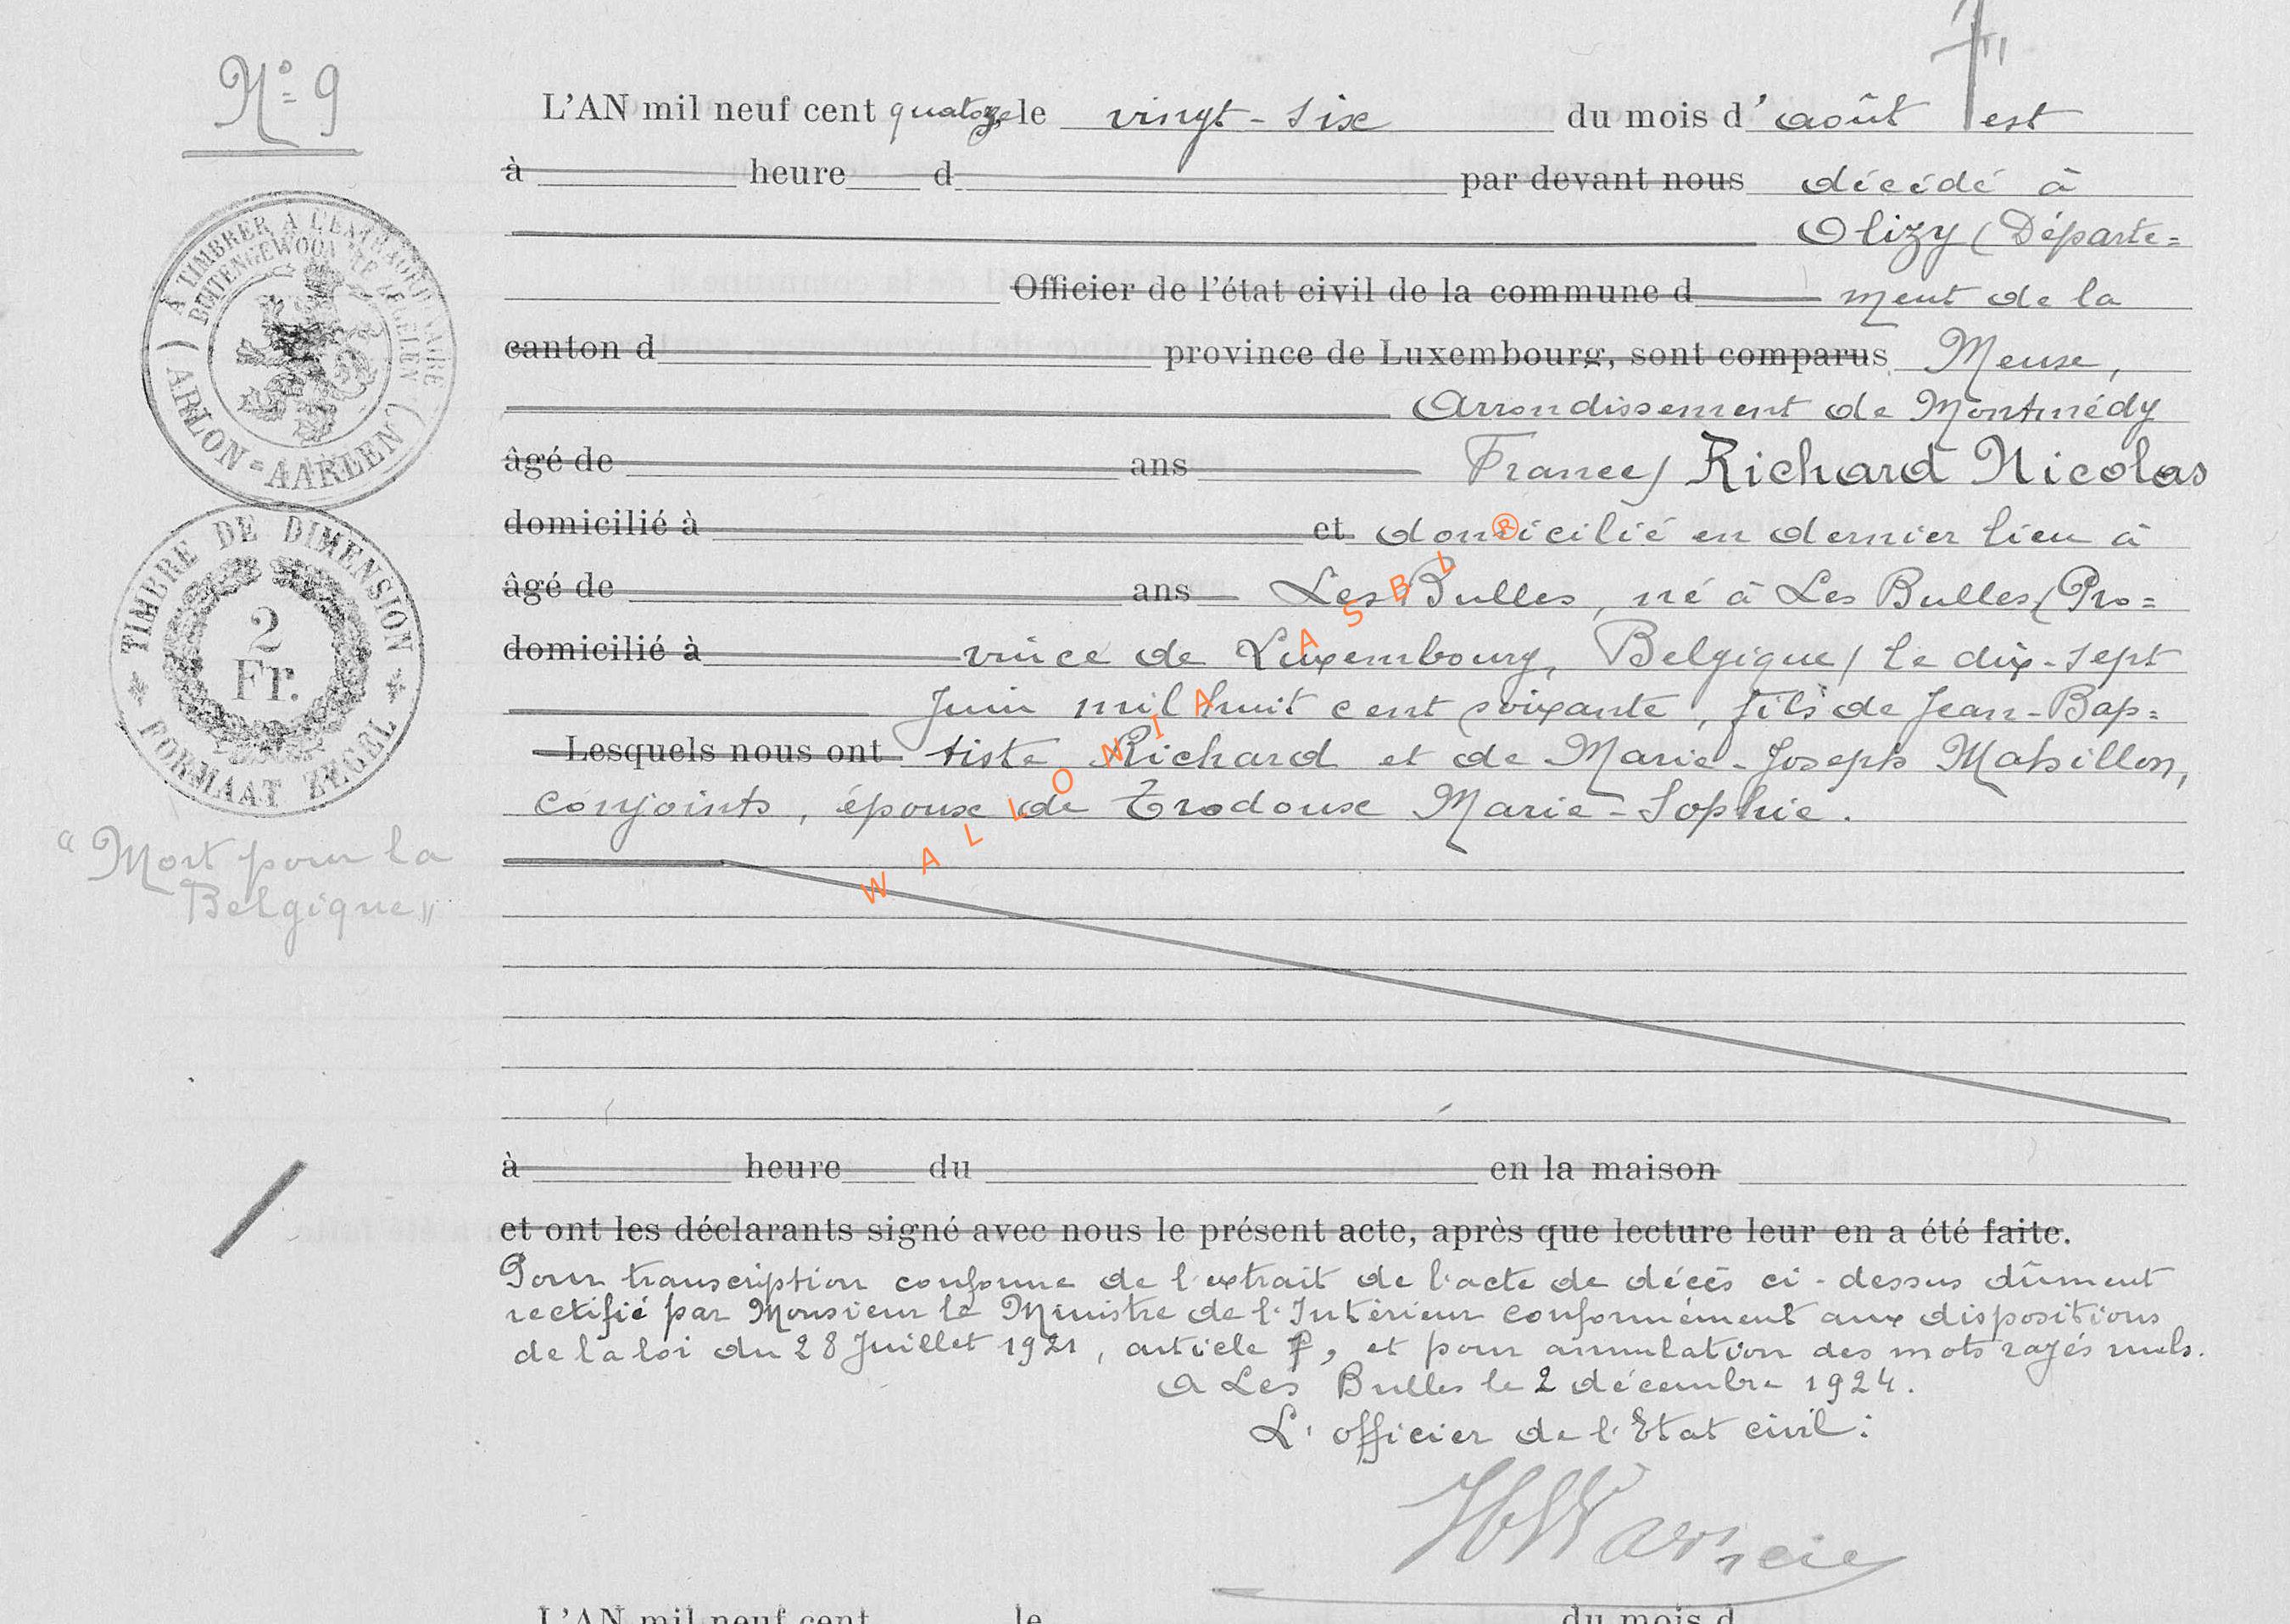 N° 9
L'AN mil neuf cent quatorze le vingt-six du mois d'août est
à heure d par devant nous décédé à
Olizy (Départe=
Officier de l'état civil de la commune d ment de la
canton d province de Luxembourg, sont comparus Meuse,
Arrondissement de Montmédy
âgé de ans France) Richard Nicolas
domicilié à et domicilié en dernier lieu à
âgé de ans Les Bulles, né à Les Bulles (Pro=
domicilié à vince de Luxembourg, Belgique) le dix-sept
Juin mil huit cent soixante, fils de Jean-Bap=
Lesquels nous ont tiste Richard et de Marie-Joseph Mahillon,
conjoints, époux de Trodoux Marie-Sophie.
à heure du en la maison
et ont les déclarants signé avec nous le présent acte, après que lecture leur en a été faite.
Pour transcription conforme de l'extrait de l'acte de décès ci-dessus dûment
rectifié par Monsieur le Ministre de l'Intérieur conformément aux dispositions
de la loi du 28 Juillet 1921, article, et pour annulation des mots rayés nuls.
A Les Bulles le 2 décembre 1924.
L'officier de l'Etat civil:
À TIMBRER A L'EXTRAORDINAIRE
BUITENGEWOON TE ZEGELEN
ARLON = AARLEN
TIMBRE DE DIMENSION
2
Fr.
FORMAAT ZEGEL
"Mort pour la
Belgique"
WALLONIA ASBL ®
L'AN mil neuf cent le du mois d